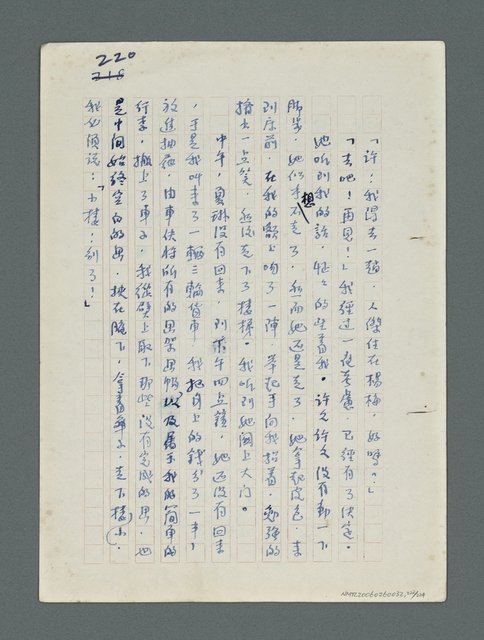 220
218
「許！我得去一趟，人傑住在楊梅，好嗎？」
「去吧！再見！」我經過一夜考慮，已經有了決定。
她听到我的話，怔々的望着我。許久許久沒有動一下
脚步，她似乎不想走了，然而她还是走了，她拿起皮包，走
到床前，在我的額上吻了一陣，举起手向我招着，勉強的
擠出一点笑，然後走下了楼梯。我听到她関上大门。
中午，夏琳沒有回來，到下午四点鐘，她还沒有回來
，于是我叫來了一輛三輪貨車，我把身上的錢分了一半，
放進抽屉，由車伕将所有的画架画稿以及屬于我的简單的
行李，搬上了車子，我從壁上取下那些沒有完成的画，也
是中间始終空白的画，挾在腋下，拿着傘子，走下楼去，
我心頭說：「小楼，别了！」
NMTL20060260032,220/504